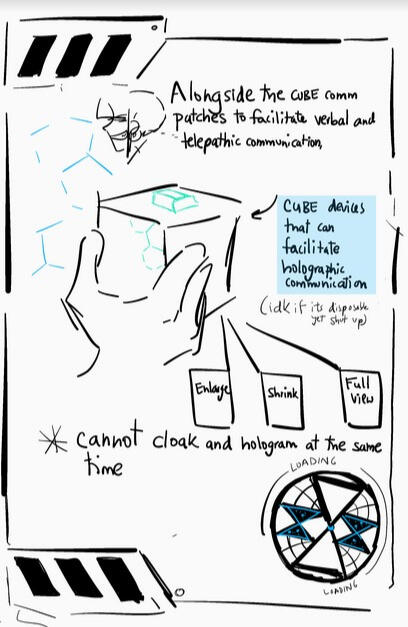 Alongside the CUBE comm
patches to facilitate verbal and
telepathic communication,
CUBE devices
that can
facilitate
holographic
communication
(idk if its disposable
yet shut up)
Enlarge
Shrink
Full
View
* Cannot cloak and hologram at the same
time
LOADING
LOADING